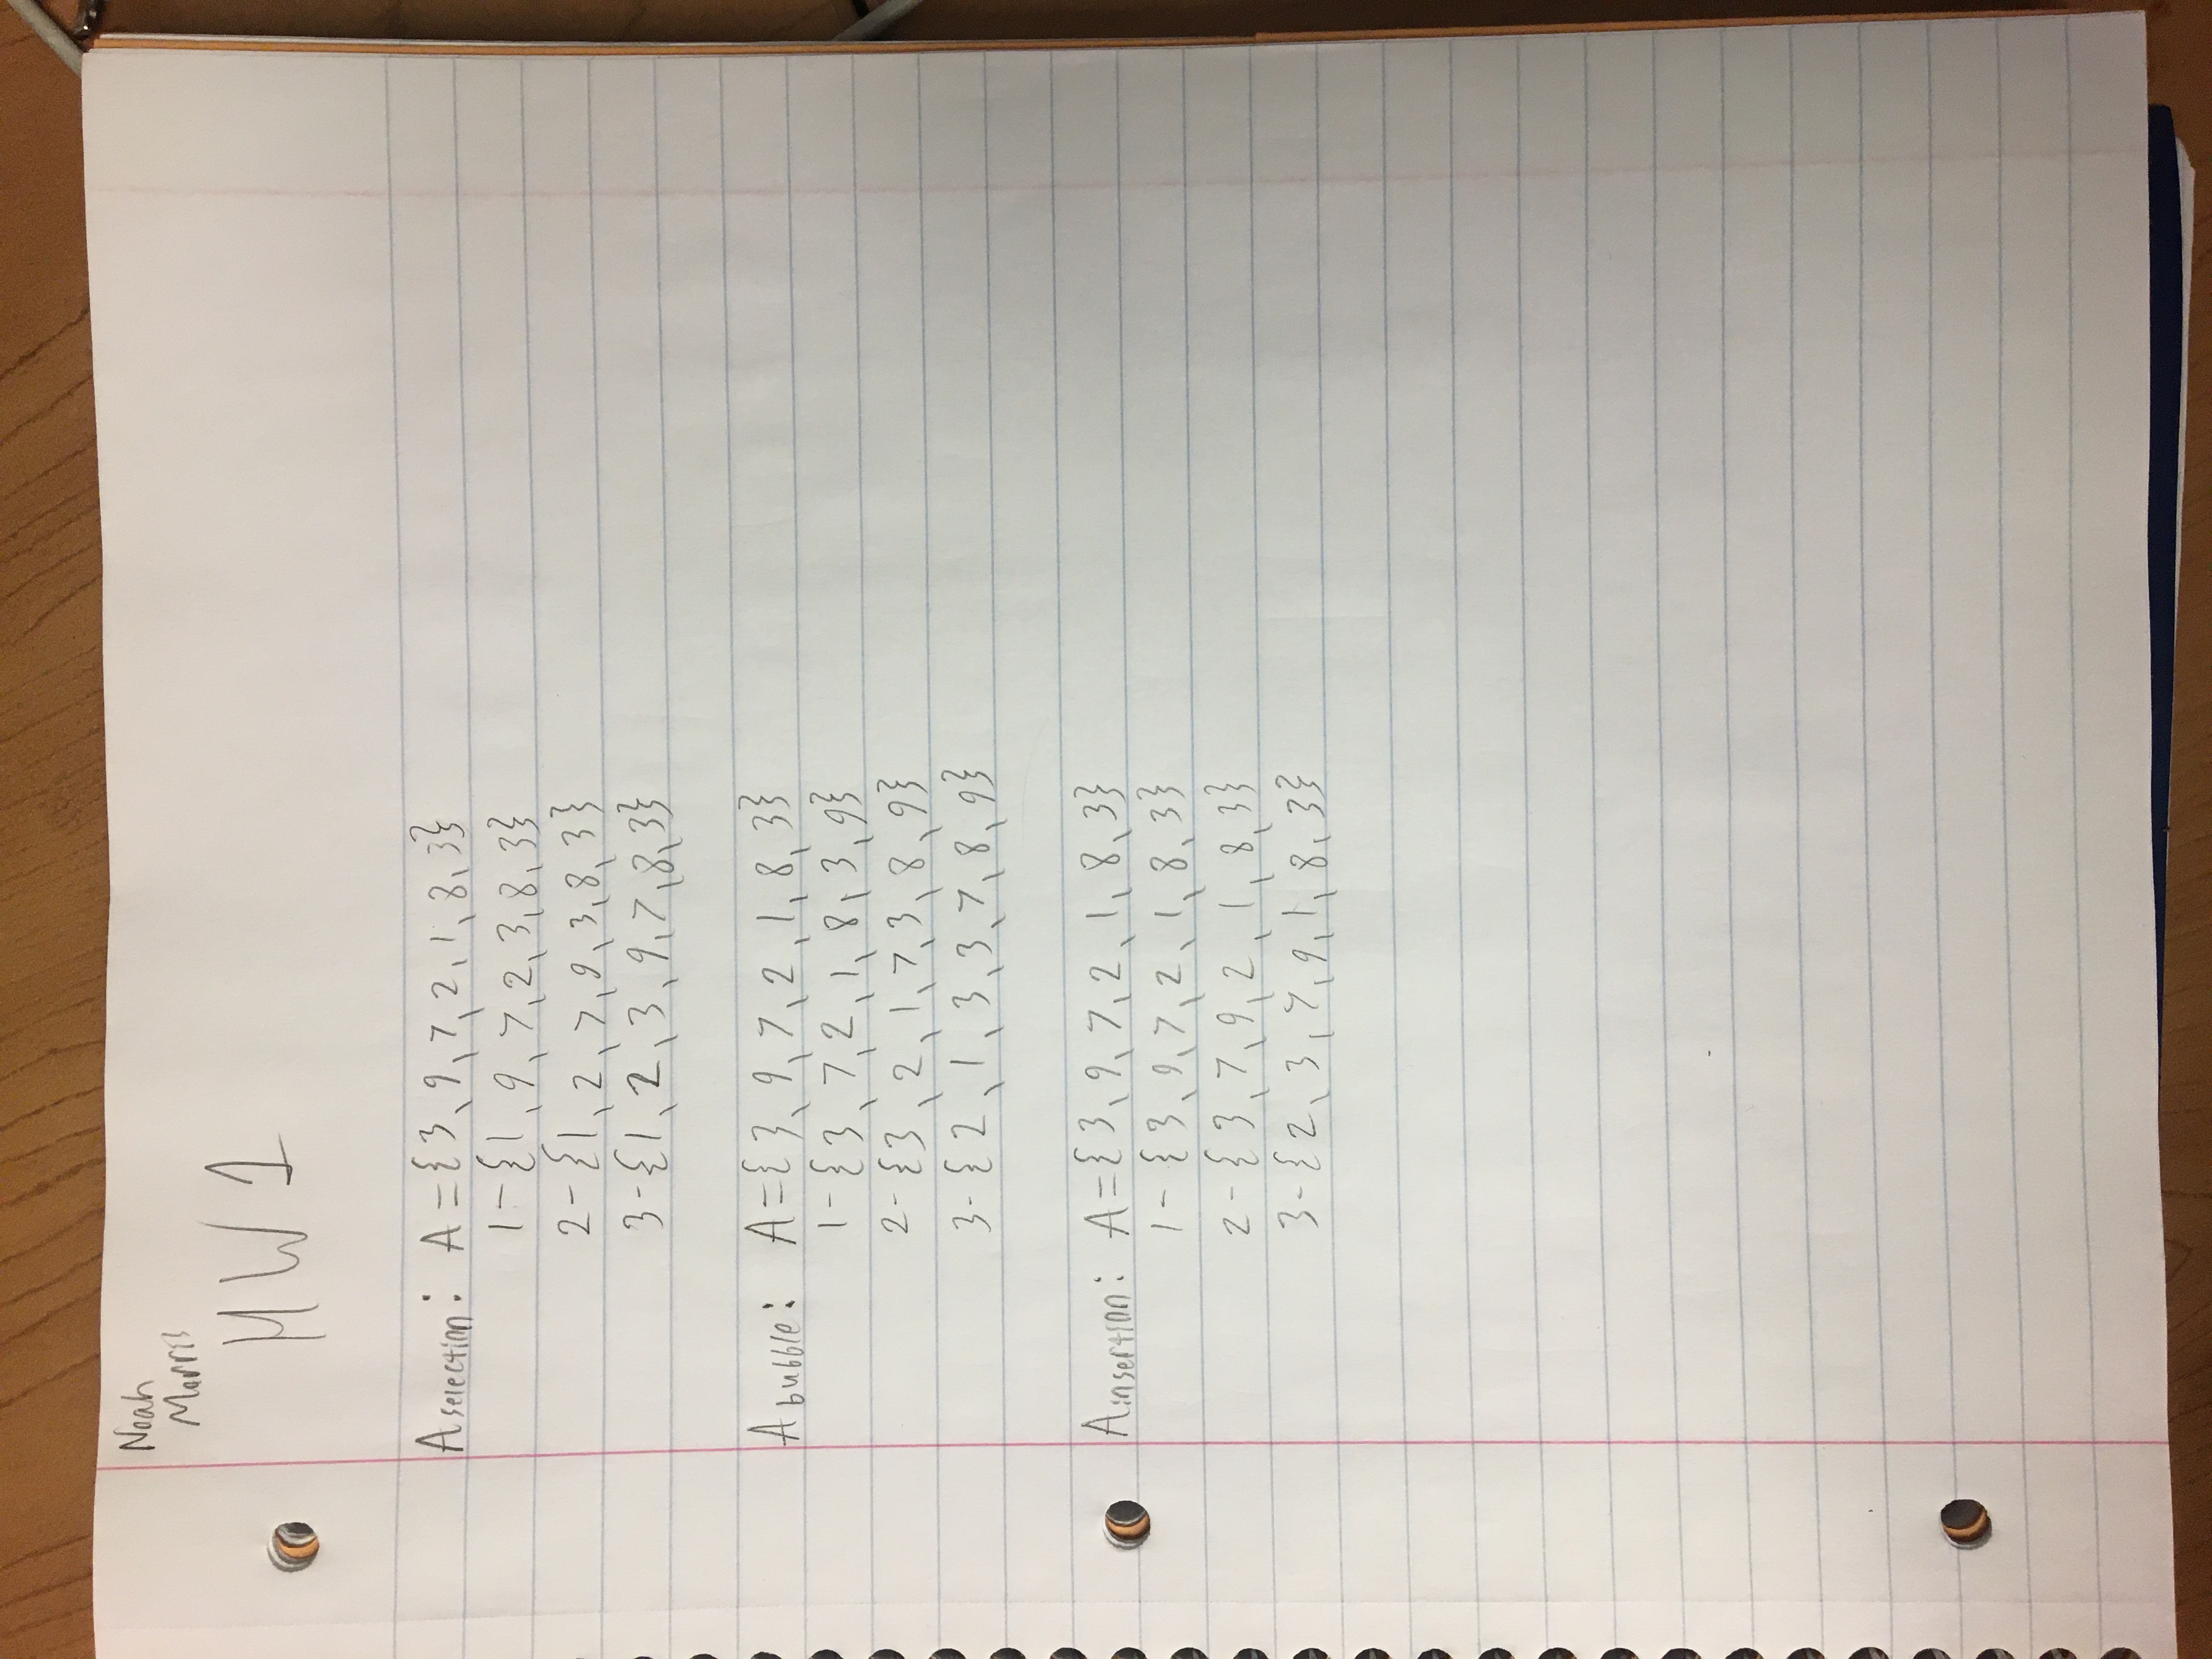 Noah
Morris
HW 1
A selection: A = {3, 9, 7, 2, 1, 8, 3}
1 - {1, 9, 7, 2, 3, 8, 3}
2 - {1, 2, 7, 9, 3, 8, 3}
3 - {1, 2, 3, 9, 7, 8, 3}
A bubble: A = {3, 9, 7, 2, 1, 8, 3}
1 - {3, 7, 2, 1, 8, 3, 9}
2 - {3, 2, 1, 7, 3, 8, 9}
3 - {2, 1, 3, 3, 7, 8, 9}
A insertion: A = {3, 9, 7, 2, 1, 8, 3}
1 - {3, 9, 7, 2, 1, 8, 3}
2 - {3, 7, 9, 2, 1, 8, 3}
3 - {2, 3, 7, 9, 1, 8, 3}